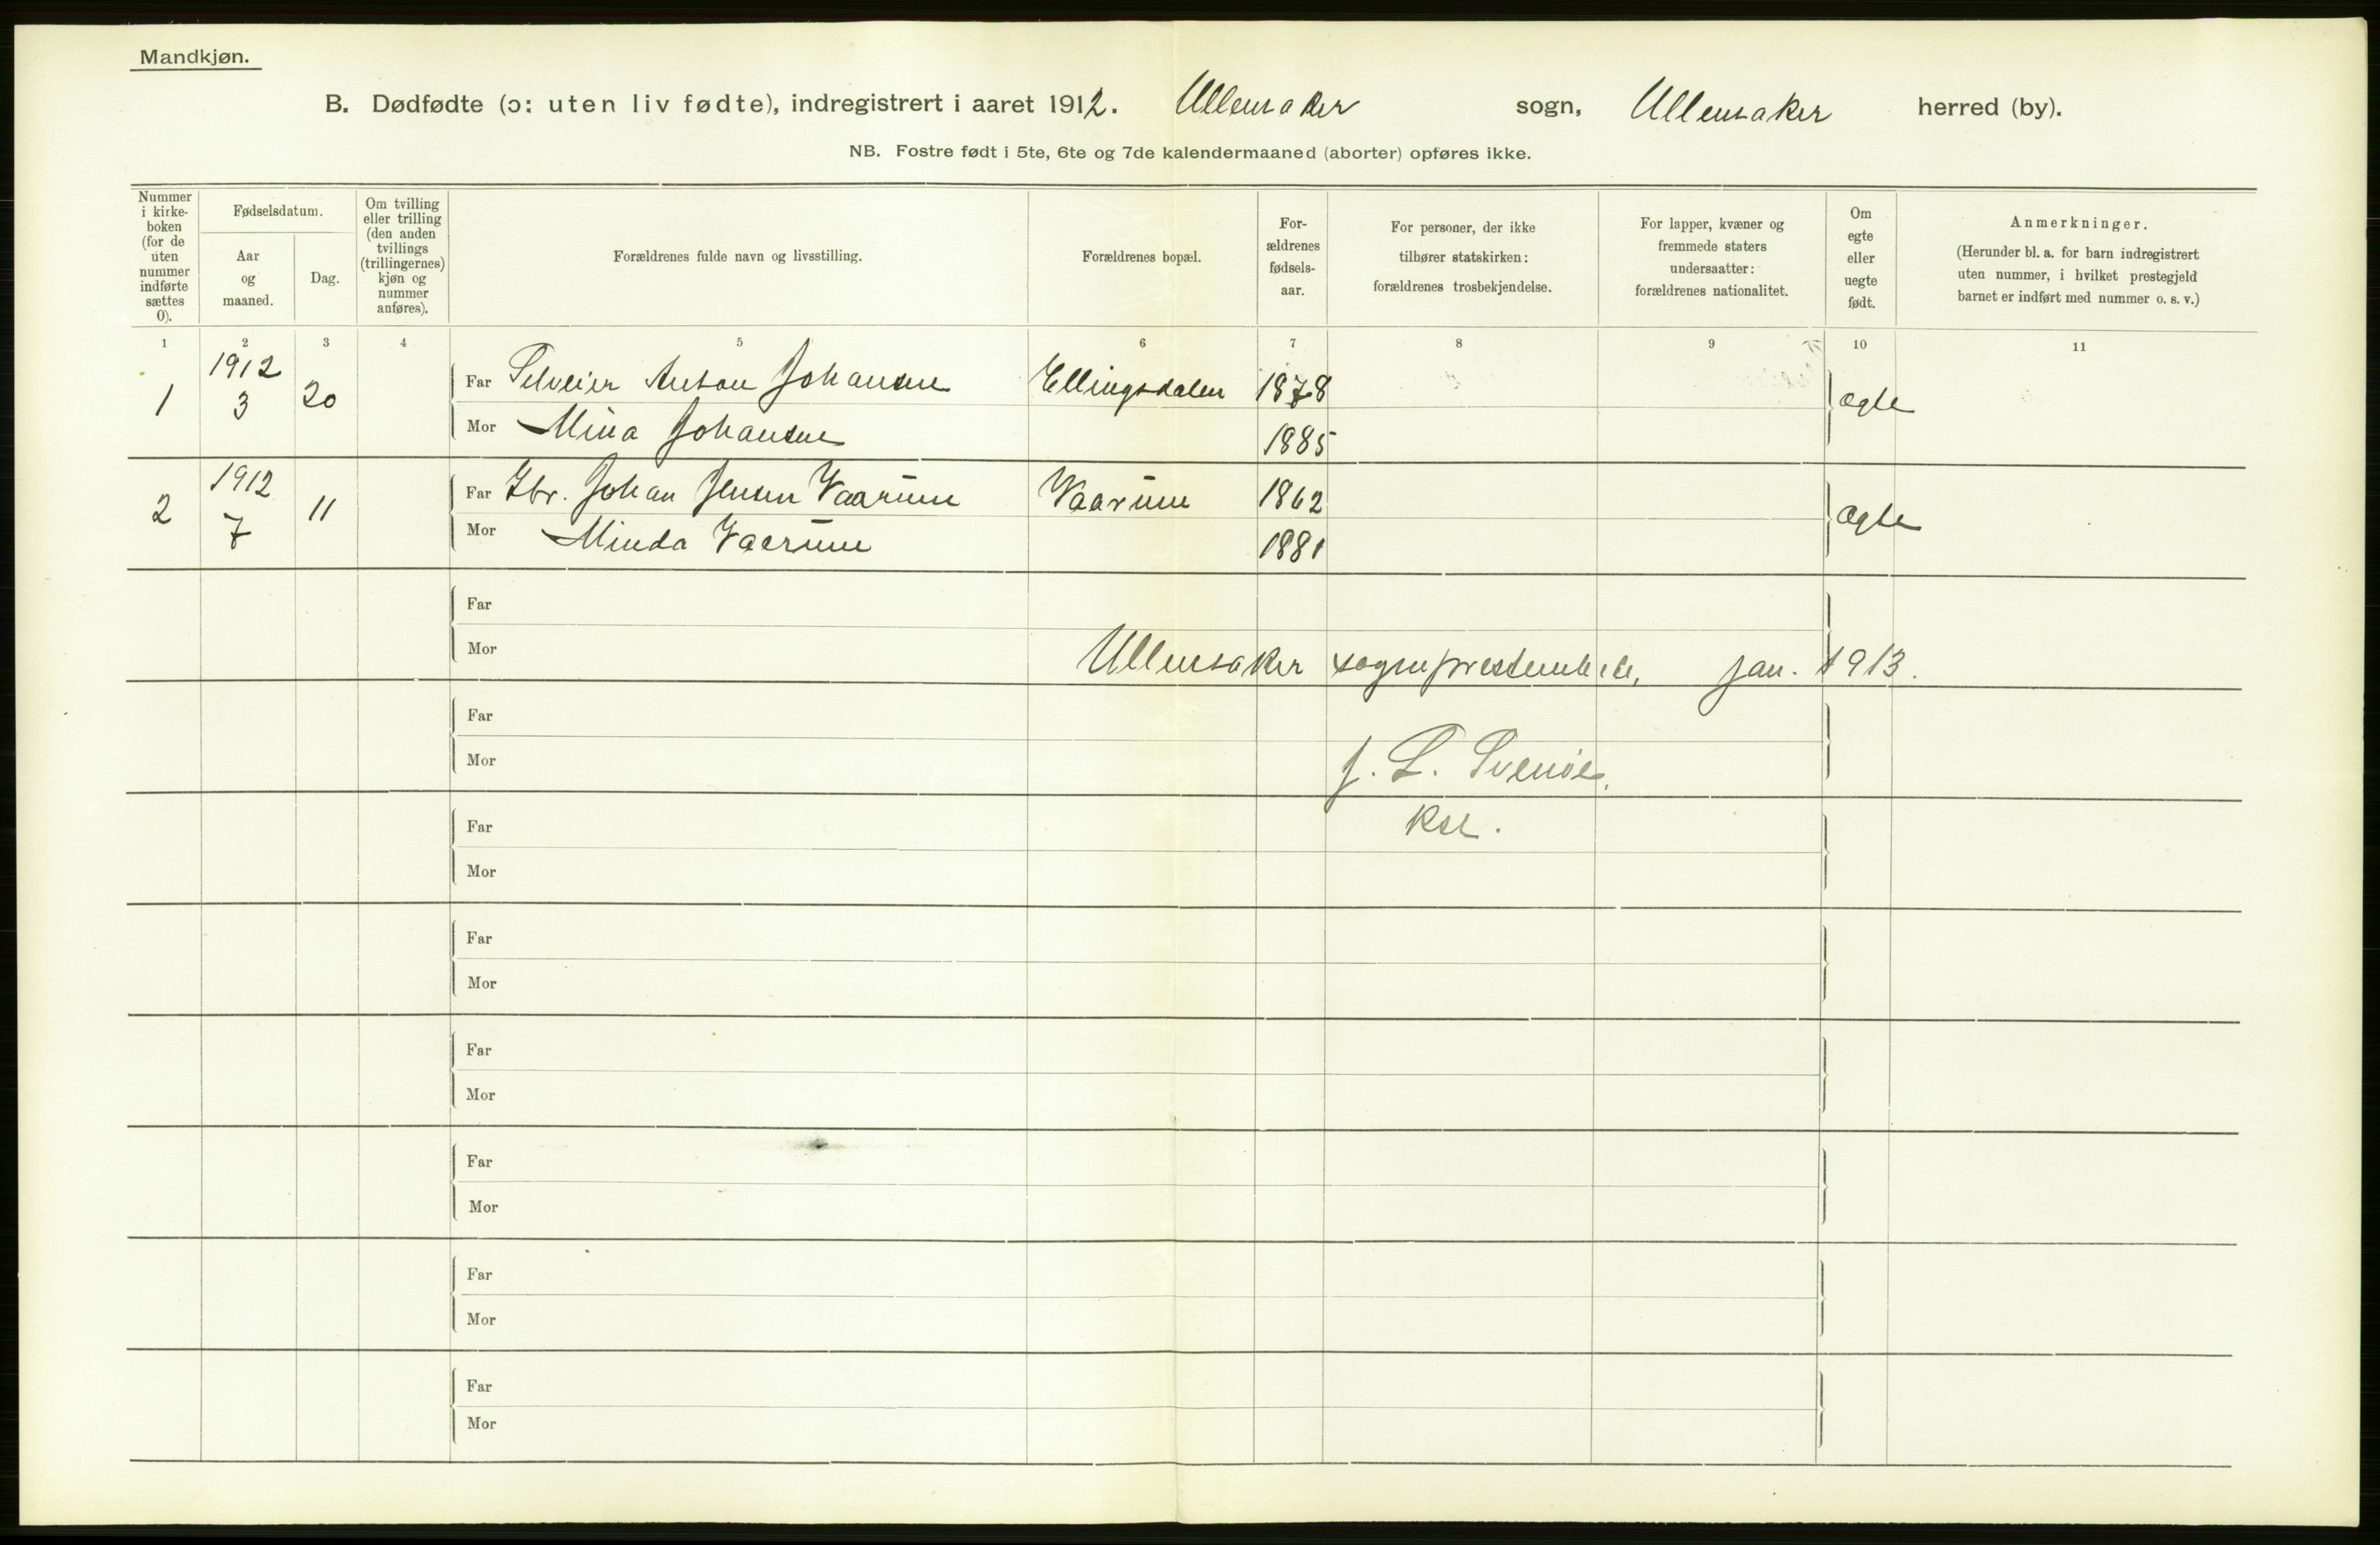 Mandkjøn.
B. Dødfødte (ɔ: uten liv fødte), indregistrert i aaret 1912. Ullensaker sogn, Ullensaker herred (by).
NB. Fostre født i 5te, 6te og 7de kalendermaaned (aborter) opføres ikke.
Nummer
i kirke-
boken
(for de
uten
nummer
indførte
sættes
0).
Fødselsdatum.
Aar
og
maaned.
Dag.
Om tvilling
eller trilling
(den anden
tvillings
(trillingernes)
kjøn og
nummer
anføres).
Forældrenes fulde navn og livsstilling.
Forældrenes bopæl.
For-
ældrenes
fødsels-
aar.
For personer, der ikke
tilhører statskirken:
forældrenes trosbekjendelse.
For lapper, kvæner og
fremmede staters
undersaatter:
forældrenes nationalitet.
Om
egte
eller
uegte
født.
Anmerkninger.
(Herunder bl. a. for barn indregistrert
uten nummer, i hvilket prestegjeld
barnet er indført med nummer o. s. v.)
1 2 3 4 5 6 7 8 9 10 11
1912
1 3 20 Far Anton Johansen Ellingsdalen 1878 ægte
Mor Mina Johansen 1885
1912
2 7 11 Far Gbr. Johan Jensen Vaarum Vaarum 1862 ægte
Mor Minda Vaarum 1881
Far
Mor Ullensaker sogneprestembede, jan. 1913.
Far
Mor J. L.
Far Ksl.
Mor
Far
Mor
Far
Mor
Far
Mor
Far
Mor
Far
Mor